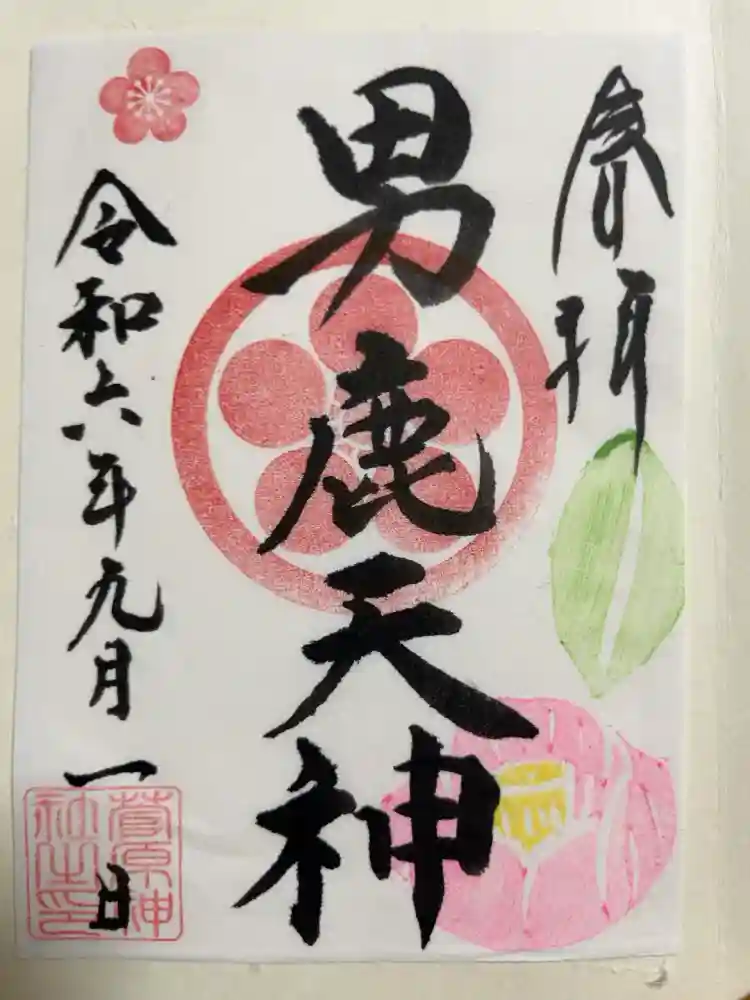 奉拝
男鹿天神
令和六年九月一日
菅原神
社之印